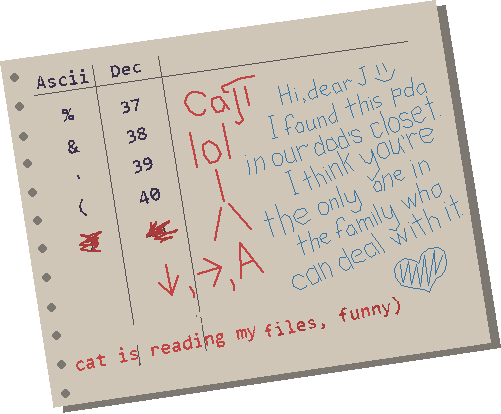 Ascii Dec
% 37
& 38
' 39
( 40
lol
↓,→,A
Hi, dear J
I found this pda
in our dad's closet.
I think you're
the only one in
the family who
can deal with it.
cat is reading my files, funny)